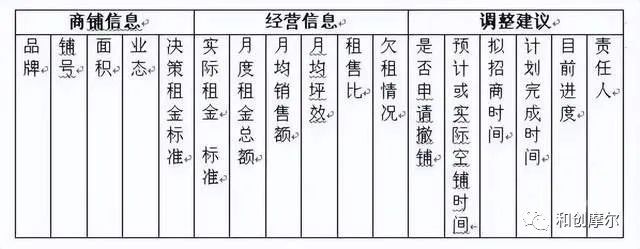 商铺信息 经营信息 调整建议
品牌 铺号 面积 业态 决策租金标准 实际租金 标准 月度租金总额 月均销售额 月均坪效 租售比 欠租情况 是否申请撤铺 预计或实际空铺时间 拟招商时间 计划完成时间 目前进度 责任人
和创摩尔